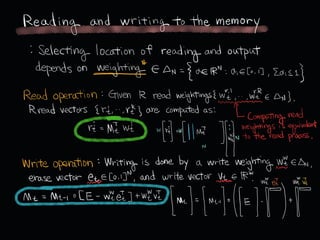 Reading and writing to the memory
: Selecting location of reading and output
depends on weighting* ∈ Δ_N = {α∈ℝ^N : α_i∈[0,1], Σα_i≤1}
Read operation : Given R read weightings {w_t^{r,1}, …, w_t^{r,R} ∈ Δ_N},
R read vectors {r_t^1, … r_t^R} are computed as:
r_t^i = M_t^T w_t^{r,i}
Computing read
weightings is equivalent
to the read process.
Write operation : Writing is done by a write weighting w_t^w ∈ Δ_N,
erase vector e_t ∈ [0,1]^W, and write vector v_t ∈ ℝ^W
M_t = M_{t-1} ∘ [E - w_t^w e_t^T] + w_t^w v_t^T
[M_t] = [M_{t-1}] ∘ ([E] -